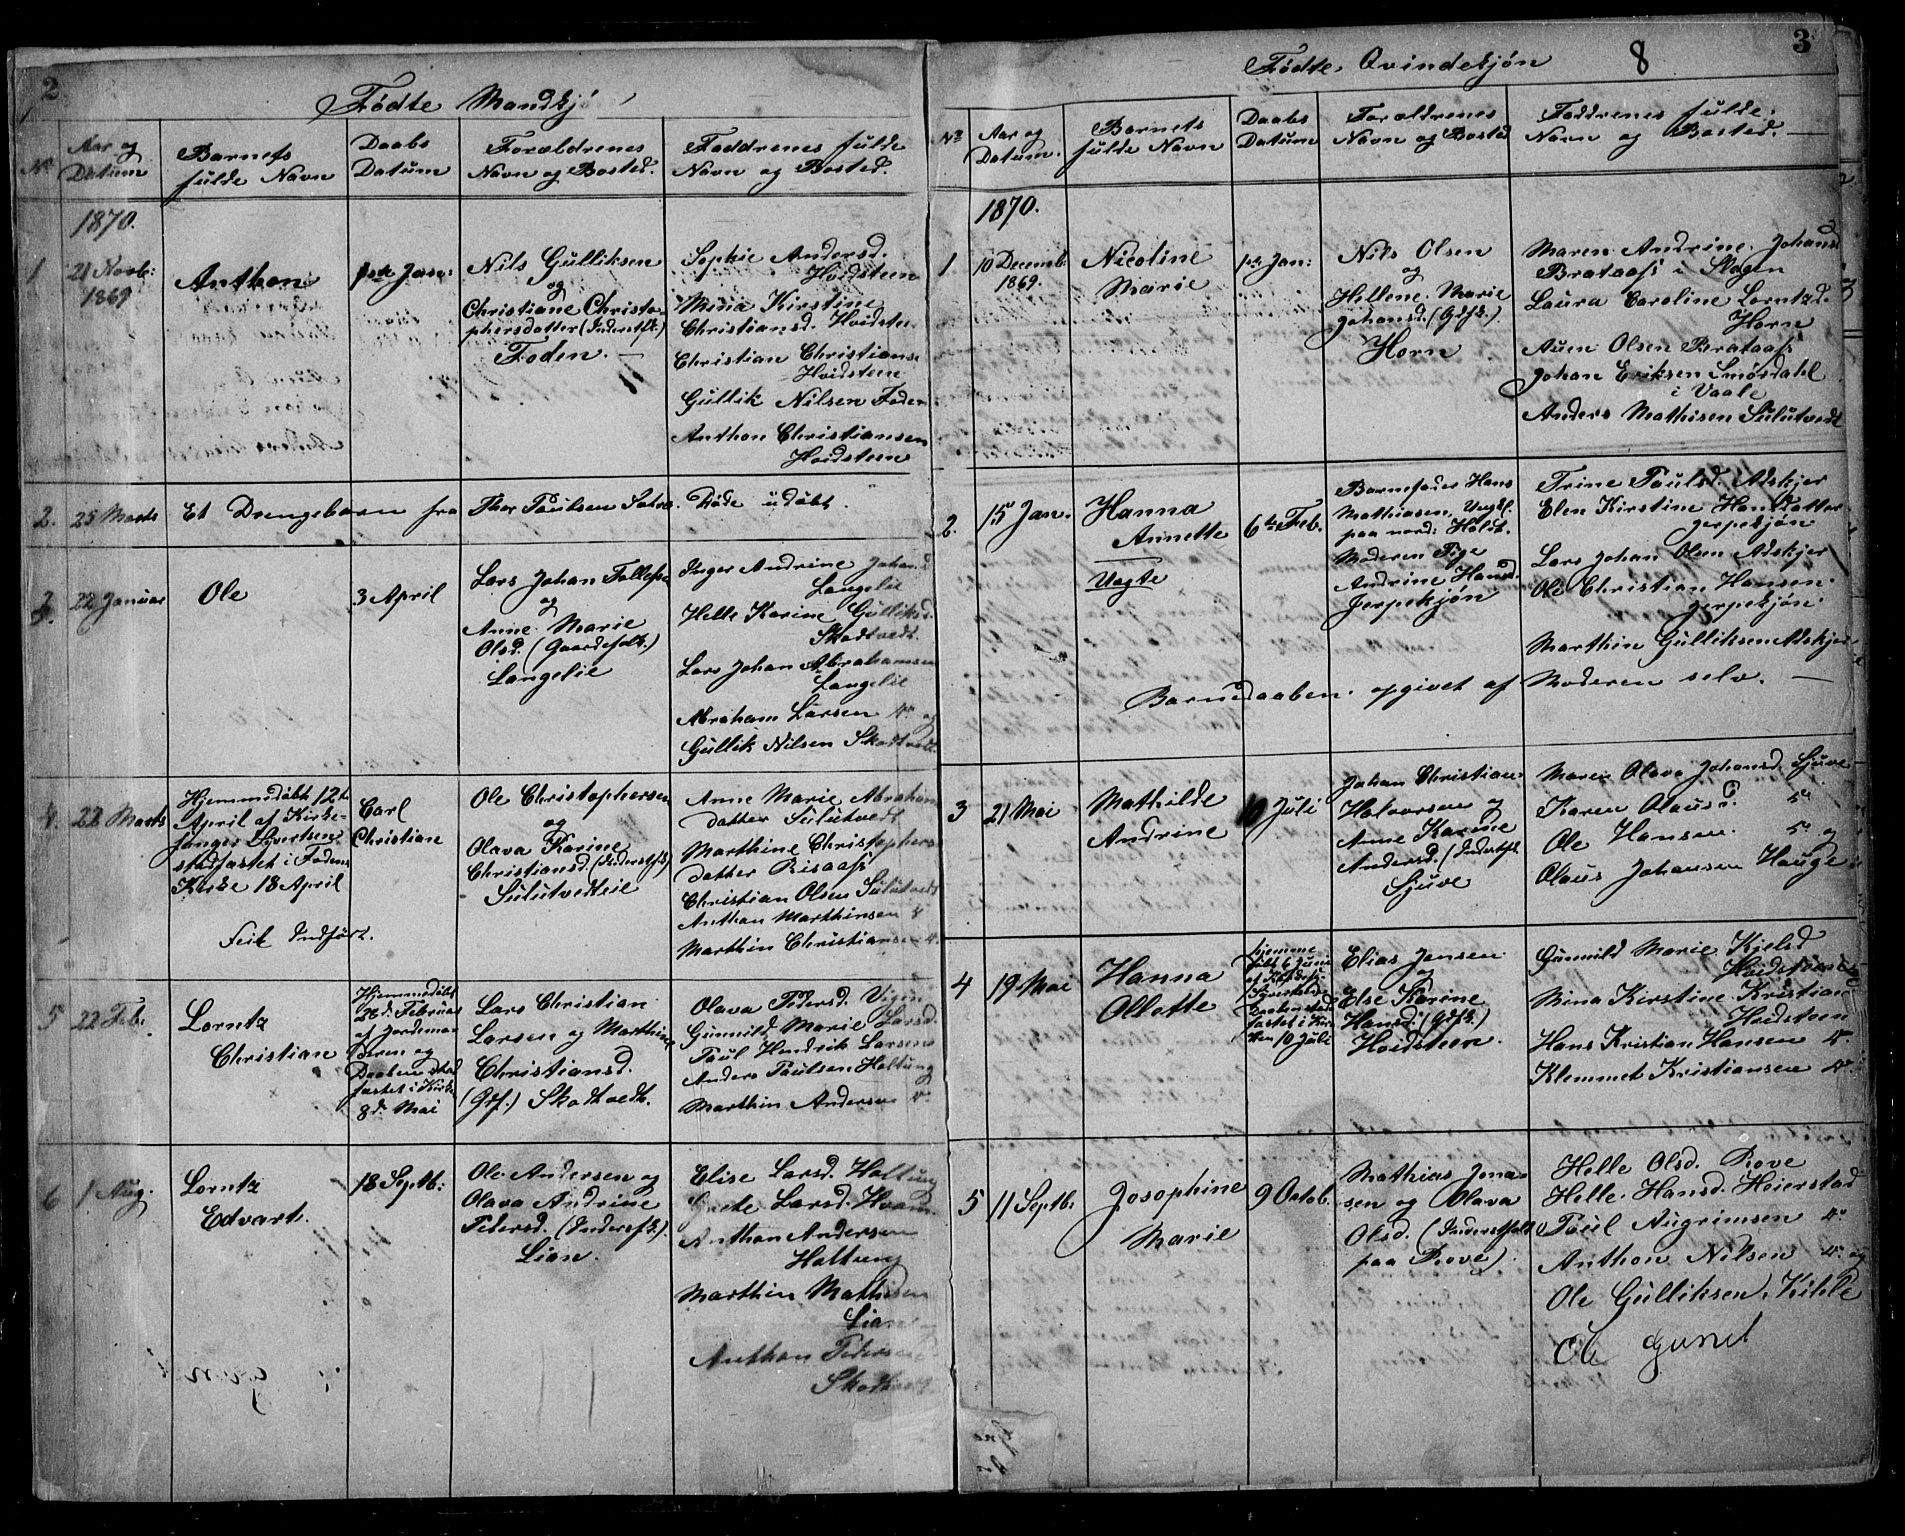 2
Fødte Mandkj
No
Aar og
Datum
Barnets
fulde Navn
Daabs
Datum
Forældrenes
Navn og Bosted.
Faddrenes fulde
Navn og Bosted.
1870.
1
21 Novb:
1869
Anthon
1ste Jan:
Nils Gulliksen
og
Christiane Christo-
phersdatter (Inderstfk.)
Foden.
Sophie Andersd.
Hvidsteen
Mina Kirstine
Christiansd. Hvidsten
Christian Christianse
Hvidsteen
Gullik Nilsen Foden
Anthon Christiansen
Hvidsteen
2.
25 Marts
Et Drengebarn fra
Thor Paulsen
Døde udøbt.
3.
22 Januar
Ole
3 April
Lars Johan Tollefse
og
Anne Marie
Olsd. (Gaardsfolk.)
Langelie
Inger Andrine Johand
Langelie
Helle Karine Gulliksd.
Skodtvedt.
Lars Johan Abrahamsen
Langelie
Abraham Larsen do og
Gullik Nilsen Skodtvedt
4.
22 Marts
Hjemmedøbt 12te
April af Kirke-
sanger Syvertsen
stadfæstet i Fodens
Kirke 18 April
Feil Indført.
Carl
Christian
Ole Christophersen
og
Olava Karine
Christiansd. (Inderstfk)
Sulutvedteie
Anne Marie Abraham
datter Sulutvedt
Marthine Christophers
datter Risaas
Christian Olsen Sulutvedt
Anthon Marthinsen do
Marthin Christiansen do.
5
22 Feb.
Lorntz
Christian
Hjemmedøbt
26d. Februar
af Jordemo-
deren og
Daaben stad
fæstet i Kirke
8d. Mai
Lars Christian
Larsen og Marthine
Christiansd.
(Gdf.) Skodtvedt.
Olava Pedersd.
Gunnild Marie Larsd.
Paul Hendrik Larsen
Anders Paulsen Holtung
Marthin Andersen do.
6
1 Aug.
Lorntz
Edvart.
18 Septb:
Ole Andersen og
Olava Andrine
Pedersd. (Inderstfk).
Lian.
Elise Larsd. Holtung
Grete Larsd. Hvam
Anthon Andersen
Holtung
Marthin Mathisen
Lian
Anthon Pedersen
Skodtvedt
3
Fødte Qvindekjøn
8
No
Aar og
Datum.
Barnets
fulde Navn
Daabs
Datum
Forældrenes
Navn og Bosted
Faddrenes fulde
Navn og Bosted.
1870.
1
10 Decemb:
1869.
Nicoline
Marie
1ste Jan:
Nils Olsen
og
Hellene Marie
Johansd. (Gdfk.)
Horn
Maren Andrine Johansd
Brataas i Slagen
Laura Caroline Lorntzd.
Horn
Auen Olsen Brataas
Johan Eriksen Smørdahl
i Vaale
Anders Mathisen Sulutvedt
2.
15 Jan.
Hanna
Annette
Uægte
6te Feb.
Barnefader Hans
Mathiasen Ungk.
paa nord: Holst.
Moderen Pige
Andrine Hansd.
Jerpekjøn
Trine Paulsd. Adskjer
Elen Kirstine Hansdatter
Jerpekjøn
Lars Johan Olsen Adskjer
Ole Christian Hansen
Jerpekjøn.
Marthin Gulliksen Adskjer
Barnedaaben opgivet af Moderen selv.
3
21 Mai
Mathilde
Andrine
10 Juli
Johan Christian
Halvorsen og
Anne Karine
Andersd. (Inderstfk
Sjuve
Maren Olava Johansd. Sjuve
Karen Olausd. do
Ole Hansen do og
Olaus Johansen Hauge
4
19 Mai
Hanna
Ollette
hjemme
døbt 6 Juni
af Kirkes:
Syvertsen
Daaben stad
fæstet i Kir
ken 10 Juli
Elias Jensen
og
Else Karine
Hansd. (Gdfk.)
Hvidsteen.
Gunnild Marie Kjelsd
Hvidsteen
Mina Kirstine Kristian
Hvidsteen
Hans Kristian Hansen do.
Klemmet Kristiansen do.
5
11 Septb:
Josephine
Marie
9 Octob.
Mathias Jona-
sen og Olava
Olsd. (Inderstfolk
paa Rove).
Helle Olsd. Rove
Helle Hansd. Heierstad
Paul Augrimsen do
Anthon Nilsen do. og
Ole Gulliksen Kihle